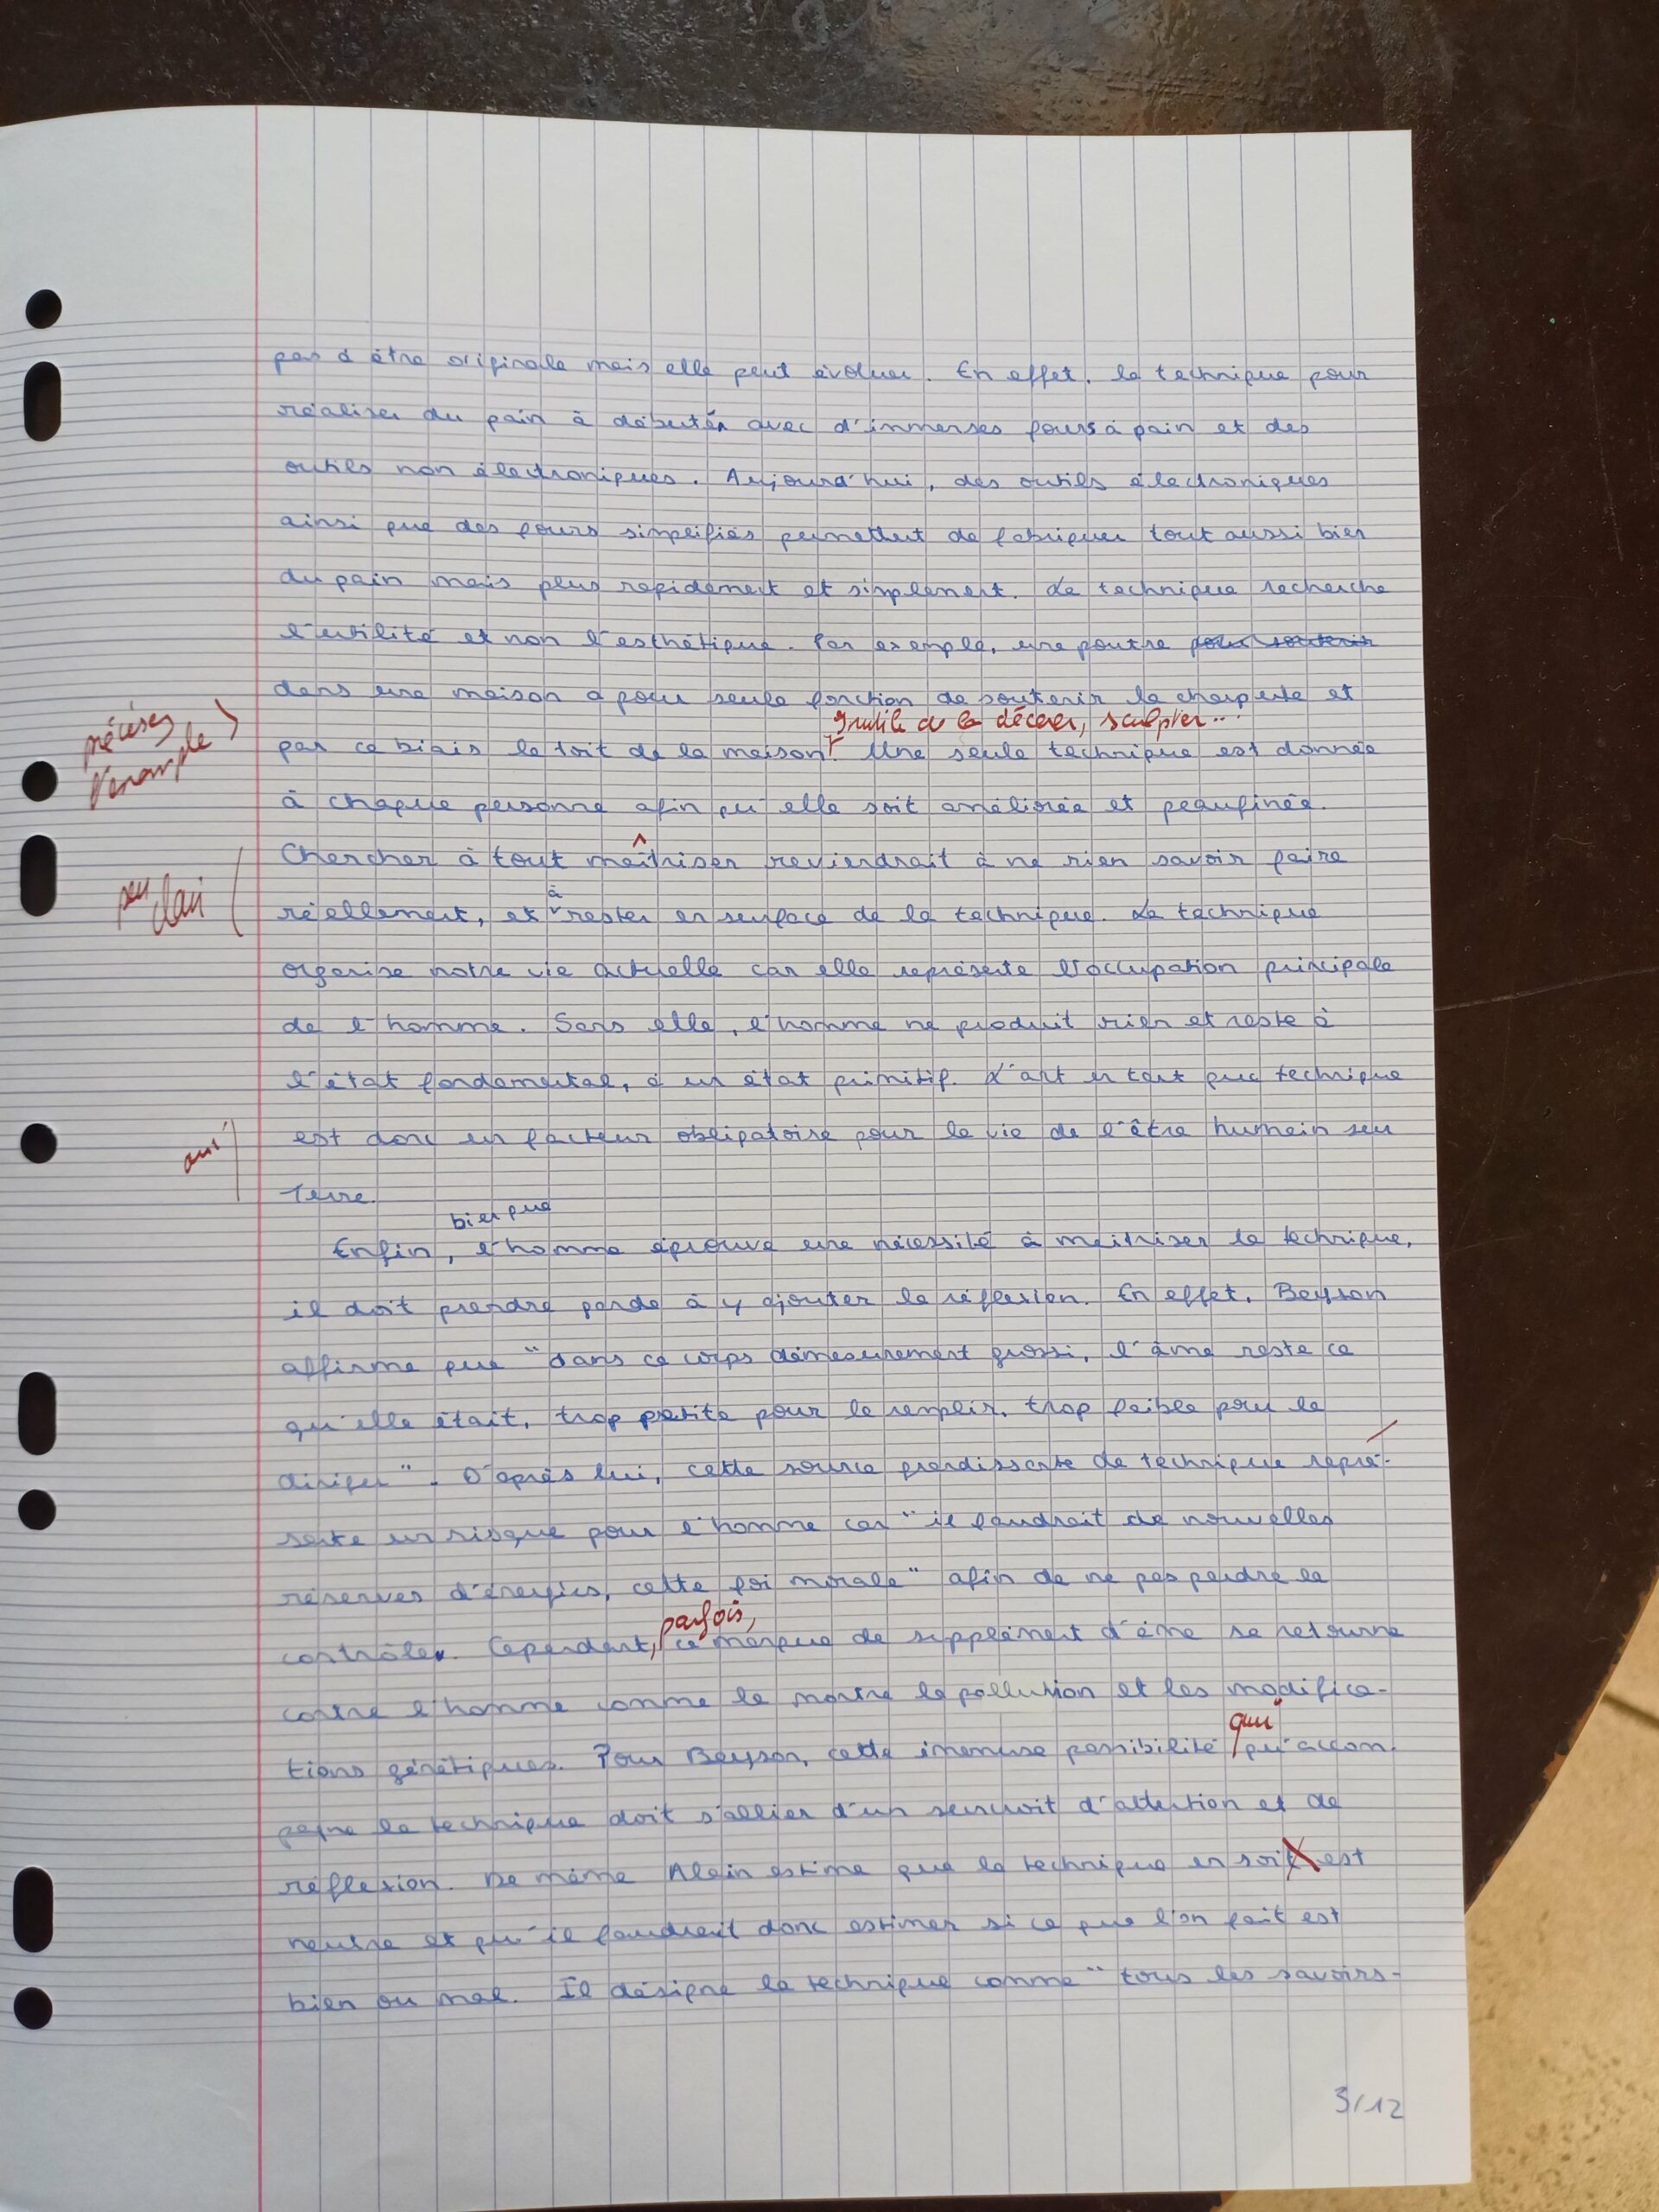 pas d'être originale mais elle peut évoluer. En effet, la technique pour
réaliser du pain à débuter avec d'immenses fours à pain et des
outils non électroniques. Aujourd'hui, des outils électroniques
ainsi que des fours simplifiés permettent de fabriquer tout aussi bien
du pain mais plus rapidement et simplement. La technique recherche
l'utilité et non l'esthétique. Par exemple, une poutre pour soutenir
dans une maison a pour seule fonction de soutenir la charpente et
Inutile de la décorer, sculpter...
précisez l'exemple
par ce biais le toit de la maison. Une seule technique est donnée
à chaque personne afin qu'elle soit améliorée et peaufinée.
Chercher à tout maîtriser reviendrait à ne rien savoir faire
peu clair
réellement, et à rester en surface de la technique. La technique
organise notre vie actuelle car elle représente l'occupation principale
de l'homme. Sans elle, l'homme ne produit rien et reste à
l'état fondamental, à un état primitif. L'art en tant que technique
est donc un facteur obligatoire pour la vie de l'être humain sur
Terre.
Enfin, bien que l'homme éprouve une nécessité à maîtriser la technique,
il doit prendre garde à y ajouter la réflexion. En effet, Beyson
affirme que "dans ce corps démesurement grossi, l'âme reste ce
qu'elle était, trop petite pour le remplir, trop faible pour le
diriger". D'après lui, cette source grandissante de technique repré-
sente un risque pour l'homme car "il faudrait de nouvelles
réserves d'énergies, cette foi morale" afin de ne pas perdre le
contrôle. Cependant, parfois, ce manque de supplément d'âme se retourne
contre l'homme comme le montre la pollution et les modifica-
tions génétiques. Pour Beyson, cette immense possibilité qu'accom-
qui
pagne la technique doit s'allier d'un surcroit d'attention et de
réflexion. De même Alain estime que la technique en soit est
neutre et qu'il faudrait donc estimer si ce que l'on fait est
bien ou mal. Il désigne la technique comme "tous les savoirs-
3/12